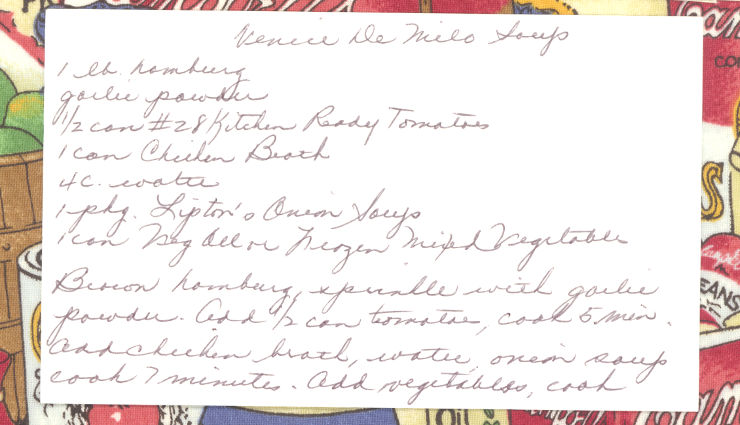 Venice De Milo Soup
1 lb. hamburg
garlic powder
1/2 can #28 Kitchen Ready Tomatoes
1 can Chicken Broth
4 c. water
1 pkg. Lipton's Onion Soup
1 can Veg All or Frozen Mixed Vegetables
Brown hamburg, sprinkle with garlic
powder. Add 1/2 can tomatoes, cook 5 min.
Add chicken broth, water, onion soup
cook 7 minutes. Add vegetables, cook
EANS